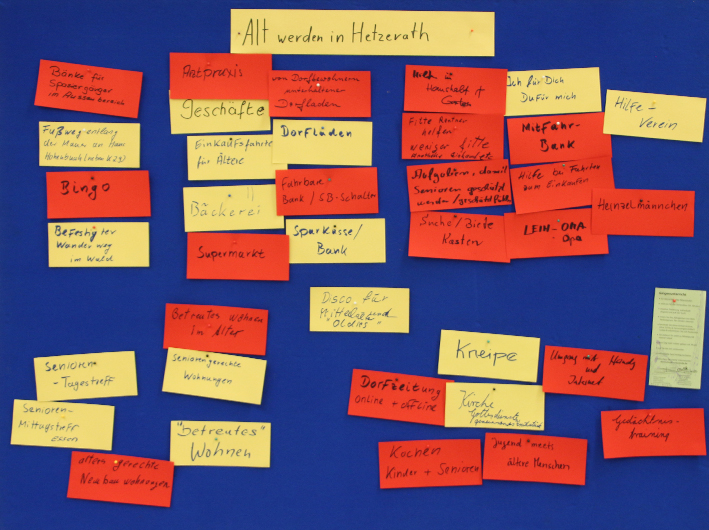 Alt werden in Hetzerath
Bänke für
Spaziergänger
im Aussenbereich
Fußweg entlang
der Mauer am Haus
Bingo
Befestigter
Wanderweg
im Wald
Arztpraxis
Geschäfte
Einkaufsfahrte
für Ältere
Bäckerei
Supermarkt
von Dorfbewohnern
Dorfladen
Dorfläden
Fahrbare
Bank / SB-Schalter
Sparkasse/
Bank
Hilfe in
Haushalt +
Garten
Fitte Rentner
helfen
weniger fitte
Senioren geschützt
werden
Suche/Biete
Kasten
Ich für Dich
Du für mich
Mitfahr-
Bank
Hilfe bei Fahrten
zum Einkaufen
LEIH-OMA
Opa
Hilfe-
Verein
Heinzelmännchen
Disco für
Mittelalte und
"Oldies"
Betreutes Wohnen
im Alter
Seniorengerechte
Wohnungen
Senioren
-Tagestreff
Senioren-
Mittagstreff
Essen
altersgerechte
Neubauwohnungen
"betreutes"
Wohnen
Kneipe
Umgang mit Handy
und
Internet
Dorfzeitung
online + offline
Kirche
Gottesdienste
Kochen
Kinder + Senioren
Jugend meets
ältere Menschen
Gedächtnis-
training